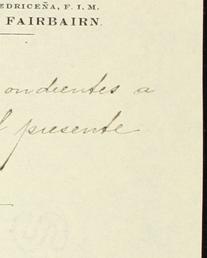 EDRICEÑA, F. I. M.
FAIRBAIRN.
ondientes a
l presente